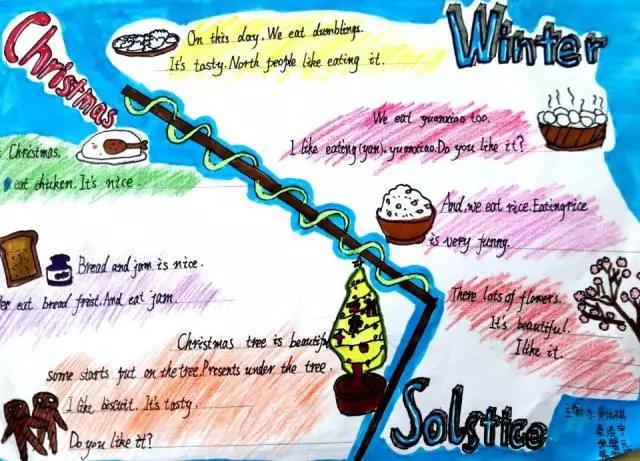 Christmas
Winter
On this day. We eat dumblings.
It's tasty. North people like eating it.
We eat yuanxiao too.
I like eating (yan). yuanxiao. Do you like it?
Christmas,
eat chicken. It's nice.
And, we eat rice. Eating rice
is very funny.
Bread and jam is nice.
eat bread frist. And eat jam.
There lots of flowers.
It's beautiful.
I like it.
Christmas tree is beautiful
some starts put on the tree. Presents under the tree.
I like biscuit. It's tasty.
Do you like it?
Solstice